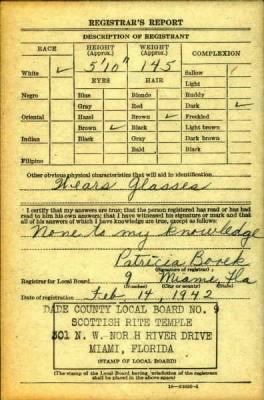 REGISTRAR'S REPORT
DESCRIPTION OF REGISTRANT
RACE HEIGHT (Approx.) WEIGHT (Approx.) COMPLEXION
White ✓ 5'10" 145 Sallow
EYES HAIR Light
Negro Blue Blonde Ruddy
Gray Red Dark ✓
Oriental Hazel Brown ✓ Freckled
Brown ✓ Black Light brown
Indian Black Gray Dark brown
Bald Black
Filipino
Other obvious physical characteristics that will aid in identification
Wears Glasses
I certify that my answers are true; that the person registered has read or has had
read to him his own answers; that I have witnessed his signature or mark and that
all of his answers of which I have knowledge are true, except as follows:
None to my knowledge
Patricia
(Signature of registrar)
Registrar for Local Board 9 Miami, Fla
(Number) (City or county) (State)
Date of registration Feb 14, 1942
DADE COUNTY LOCAL BOARD NO. 9
SCOTTISH RITE TEMPLE
301 N. W. NOR H RIVER DRIVE
MIAMI, FLORIDA
(STAMP OF LOCAL BOARD)
(The stamp of the Local Board having jurisdiction of the registrant
shall be placed in the above space.)